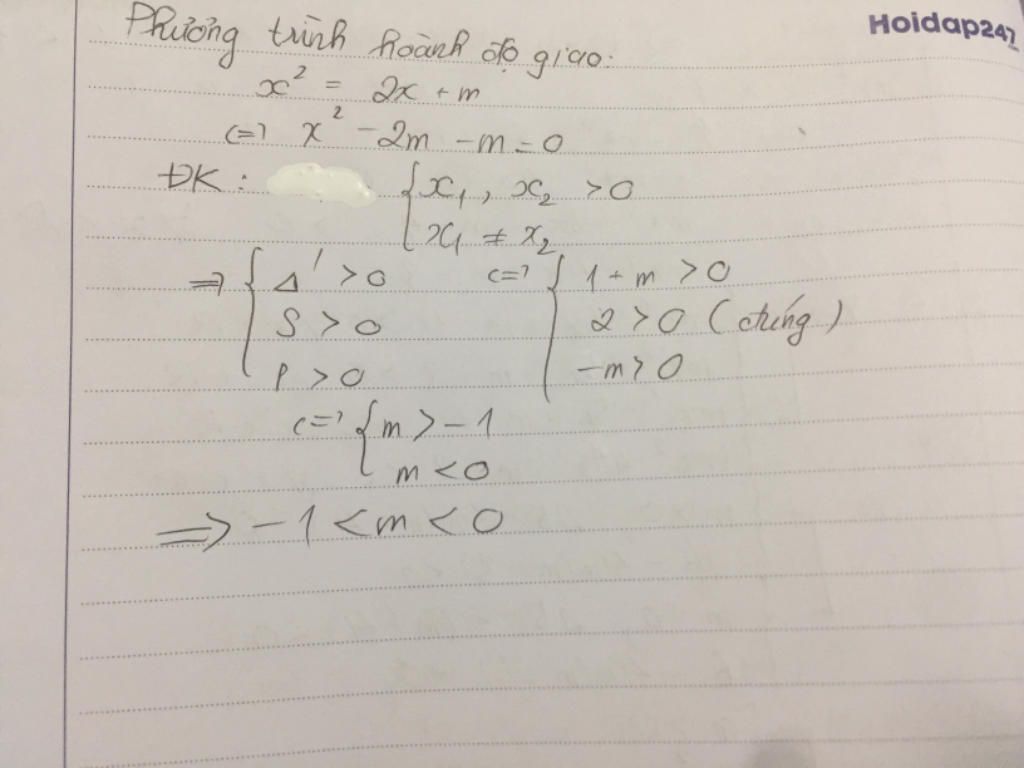 Hoidap247
Phương trình hoành độ giao:
x² = 2x + m
<=> x² - 2m - m = 0
ĐK: { x₁, x₂ > 0
x₁ ≠ x₂
=> { Δ' > 0 <=> { 1 + m > 0
S > 0 2 > 0 (đúng)
P > 0 -m > 0
<=> { m > -1
m < 0
=> -1 < m < 0